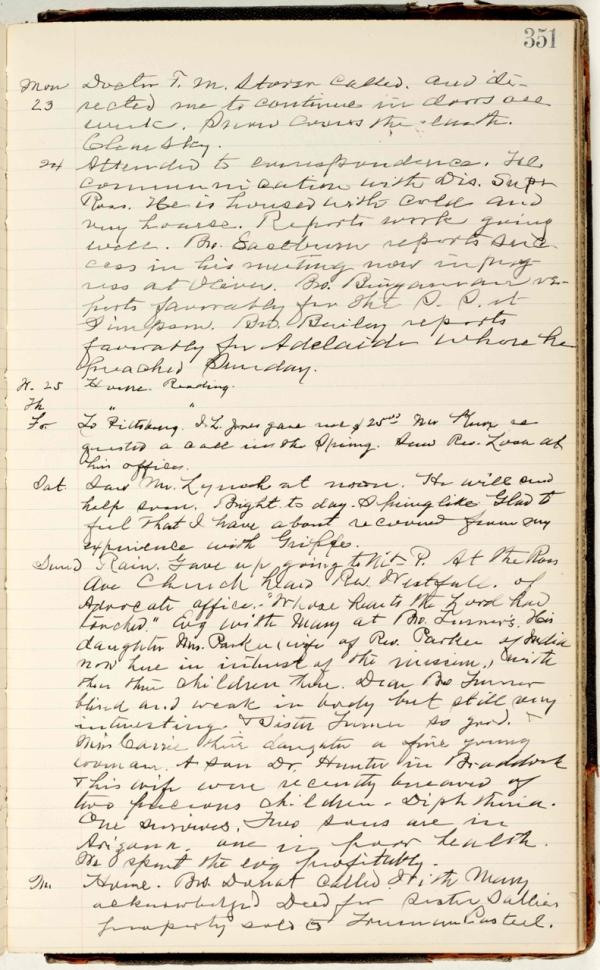 351
Mon Doctor T. M. Storer called. and di-
23 rected me to continue in doors all
week. Snow covers the earth.
Clear sky.
24 Attended to correspondence. Tel.
communication with Dis. Supt
Ross. He is housed with cold and
very hoarse. Reports work going
well. Bro. Eastburn reports suc-
cess in his meeting now in prog-
ress at Oliver. Bro. Bingaman re-
ports favorably for the P. P. at
Simpson. Bro. Bailey reports
favorably for Adelaide where he
preached Sunday.
W. 25 Home. Reading.
Th
Fr To "Pittsburg." J. L. Jones gave me $ 25.00 Mr re
quested a call in the Spring. Saw Rev. at
his office.
Sat Saw Mr. Lynch at noon. He will send
help soon. Bright to day. Spring like Glad to
feel that I have about recovered from my
experience with Grippe.
Sund Rain. Gave up going to Mt. P. At the Ross
Ave Church heard Rev. Westfall. of
Advocate office. "Whose hearts the Lord had
touched." Evg with Mary at Bro. Turner's. His
daughter Mrs. Parker (wife of Rev. Parker of India
now here in interest of the mission,) with
their three children there. Dear Bro Turner
blind and weak in body but still very
interesting & Sister Turner so good.
Miss Carrie their daughter a fine young
woman. A son Dr. Hunter in Braddock
& his wife were recently bereaved of
two precious children - Diphtheria.
One survives. Two sons are in
Arizona. one in poor health.
We spent the evg profitably.
M. Home. Bro. Donat called. With Mary
acknowledged Deed for Sister Sallies
property sold to Truman Casteel.